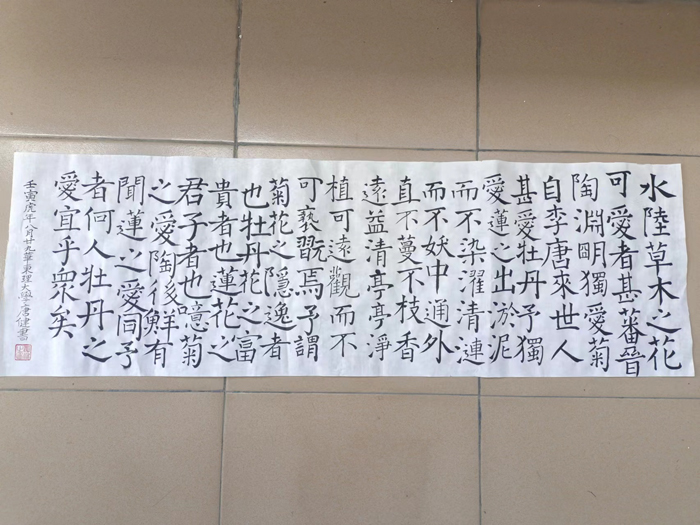 水陸草木之花
可愛者甚蕃晉
陶淵明獨愛菊
自李唐來世人
甚愛牡丹予獨
愛蓮之出淤泥
而不染濯清漣
而不妖中通外
直不蔓不枝香
遠益清亭亭淨
植可遠觀而不
可褻翫焉予謂
菊花之隱逸者
也牡丹花之富
貴者也蓮花之
君子者也噫菊
之愛陶後鮮有
聞蓮之愛同予
者何人牡丹之
愛宜乎衆矣
壬寅虎年八月廿九華東理大學唐建書